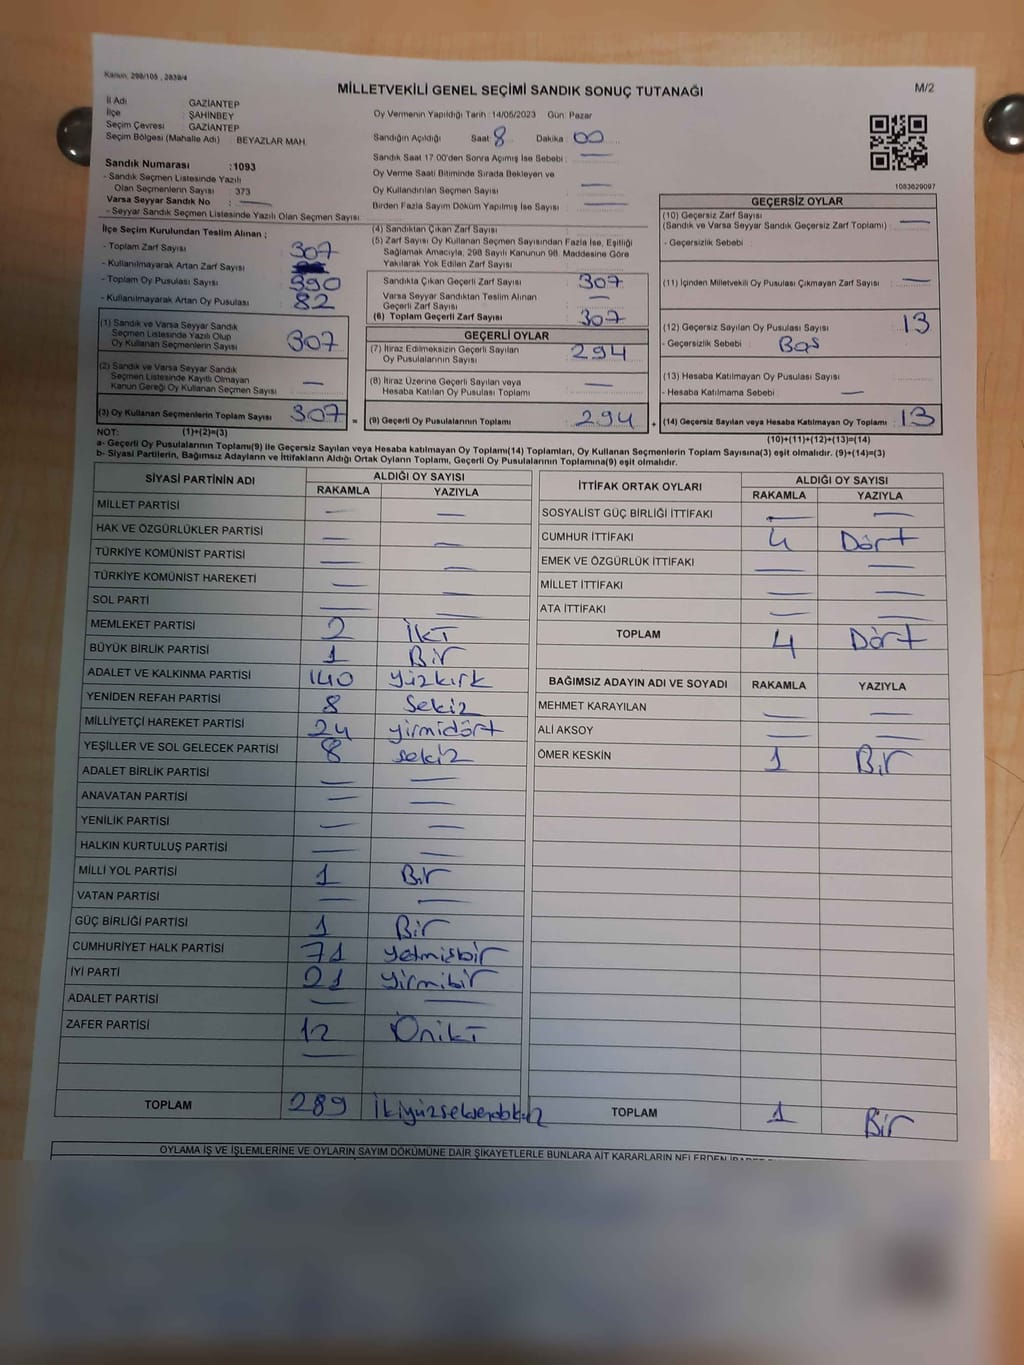 Kanun, 298/105 , 2839/4
MİLLETVEKİLİ GENEL SEÇİMİ SANDIK SONUÇ TUTANAĞI
M/2
İl Adı : GAZİANTEP
İlçe : ŞAHİNBEY
Seçim Çevresi : GAZİANTEP
Seçim Bölgesi (Mahalle Adı) : BEYAZLAR MAH.
Oy Vermenin Yapıldığı Tarih : 14/05/2023 Gün: Pazar
Sandığın Açıldığı Saat 8 Dakika 00
Sandık Saat 17.00'den Sonra Açımış İse Sebebi : —
Oy Verme Saati Bitiminde Sırada Bekleyen ve
Oy Kullandırılan Seçmen Sayısı —
Birden Fazla Sayım Döküm Yapılmış İse Sayısı : —
1083629097
Sandık Numarası : 1093
- Sandık Seçmen Listesinde Yazılı
Olan Seçmenlerin Sayısı : 373
Varsa Seyyar Sandık No : —
- Seyyar Sandık Seçmen Listesinde Yazılı Olan Seçmen Sayısı
İlçe Seçim Kurulundan Teslim Alınan ;
- Toplam Zarf Sayısı 307
- Kullanılmayarak Artan Zarf Sayısı
- Toplam Oy Pusulası Sayısı 390
- Kullanılmayarak Artan Oy Pusulası 82
(1) Sandık ve Varsa Seyyar Sandık
Seçmen Listesinde Yazılı Olup
Oy Kullanan Seçmenlerin Sayısı 307
(2) Sandık ve Varsa Seyyar Sandık
Seçmen Listesinde Kayıtlı Olmayan
Kanun Gereği Oy Kullanan Seçmen Sayısı —
(3) Oy Kullanan Seçmenlerin Toplam Sayısı 307 =
(4) Sandıktan Çıkan Zarf Sayısı
(5) Zarf Sayısı Oy Kullanan Seçmen Sayısından Fazla İse, Eşitliği
Sağlamak Amacıyla, 298 Sayılı Kanunun 98. Maddesine Göre
Yakılarak Yok Edilen Zarf Sayısı :
Sandıkta Çıkan Geçerli Zarf Sayısı : 307
Varsa Seyyar Sandıktan Teslim Alınan
Geçerli Zarf Sayısı : —
(6) Toplam Geçerli Zarf Sayısı : 307
GEÇERLİ OYLAR
(7) İtiraz Edilmeksizin Geçerli Sayılan
Oy Pusulalarının Sayısı : 294
(8) İtiraz Üzerine Geçerli Sayılan veya
Hesaba Katılan Oy Pusulaları Toplamı : —
(9) Geçerli Oy Pusulalarının Toplamı : 294 +
GEÇERSİZ OYLAR
(10) Geçersiz Zarf Sayısı
(Sandık ve Varsa Seyyar Sandık Geçersiz Zarf Toplamı) : —
- Geçersizlik Sebebi :
(11) İçinden Milletvekili Oy Pusulası Çıkmayan Zarf Sayısı : —
(12) Geçersiz Sayılan Oy Pusulası Sayısı : 13
- Geçersizlik Sebebi : Boş
(13) Hesaba Katılmayan Oy Pusulası Sayısı :
- Hesaba Katılmama Sebebi : —
(14) Geçersiz Sayılan veya Hesaba Katılmayan Oy Toplamı : 13
NOT: (1)+(2)=(3)
(10)+(11)+(12)+(13)=(14)
a- Geçerli Oy Pusulalarının Toplamı(9) ile Geçersiz Sayılan veya Hesaba katılmayan Oy Toplamı(14) Toplamları, Oy Kullanan Seçmenlerin Toplam Sayısına(3) eşit olmalıdır. (9)+(14)=(3)
b- Siyasi Partilerin, Bağımsız Adayların ve İttifakların Aldığı Ortak Oyların Toplamı, Geçerli Oy Pusulalarının Toplamına(9) eşit olmalıdır.
SİYASİ PARTİNİN ADI ALDIĞI OY SAYISI
RAKAMLA YAZIYLA
MİLLET PARTİSİ — —
HAK VE ÖZGÜRLÜKLER PARTİSİ — —
TÜRKİYE KOMÜNİST PARTİSİ — —
TÜRKİYE KOMÜNİST HAREKETİ — —
SOL PARTİ — —
MEMLEKET PARTİSİ 2 İki
BÜYÜK BİRLİK PARTİSİ 1 Bir
ADALET VE KALKINMA PARTİSİ 140 yüzkırk
YENİDEN REFAH PARTİSİ 8 Sekiz
MİLLİYETÇİ HAREKET PARTİSİ 24 yirmidört
YEŞİLLER VE SOL GELECEK PARTİSİ 8 sekiz
ADALET BİRLİK PARTİSİ — —
ANAVATAN PARTİSİ — —
YENİLİK PARTİSİ — —
HALKIN KURTULUŞ PARTİSİ — —
MİLLİ YOL PARTİSİ 1 Bir
VATAN PARTİSİ — —
GÜÇ BİRLİĞİ PARTİSİ 1 Bir
CUMHURİYET HALK PARTİSİ 71 yetmişbir
İYİ PARTİ 21 yirmibir
ADALET PARTİSİ — —
ZAFER PARTİSİ 12 Oniki
—
TOPLAM 289 İkiyüzseksendokuz
İTTİFAK ORTAK OYLARI ALDIĞI OY SAYISI
RAKAMLA YAZIYLA
SOSYALİST GÜÇ BİRLİĞİ İTTİFAKI — —
CUMHUR İTTİFAKI 4 Dört
EMEK VE ÖZGÜRLÜK İTTİFAKI — —
MİLLET İTTİFAKI — —
ATA İTTİFAKI — —
TOPLAM 4 Dört
BAĞIMSIZ ADAYIN ADI VE SOYADI RAKAMLA YAZIYLA
MEHMET KARAYILAN — —
ALİ AKSOY — —
ÖMER KESKİN 1 Bir
TOPLAM 1 Bir
OYLAMA İŞ VE İŞLEMLERİNE VE OYLARIN SAYIM DÖKÜMÜNE DAİR ŞİKAYETLERLE BUNLARA AİT KARARLARIN NELERDEN